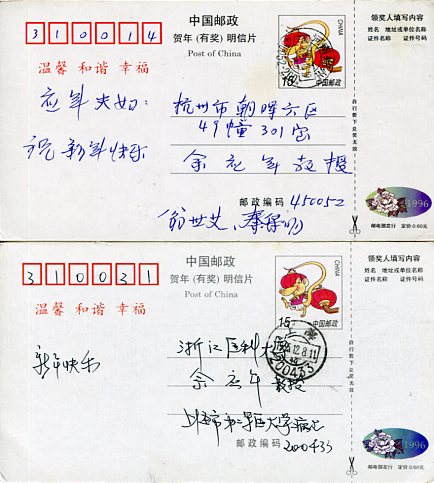 中国邮政
贺年(有奖)明信片
Post of China
310014
温馨 和谐 幸福
CHINA
15
中国邮政
领奖人填写内容
姓名 地址或单位名称
证件名称 证件号码
应年夫妇:
祝新年快乐
杭州市朝晖六区
49幢301室
余应年教授
邮政编码 450052
自行剪下兑奖无效
1996
邮电部发行 定价:0.60元
中国邮政
贺年(有奖)明信片
Post of China
310031
温馨 和谐 幸福
CHINA
15
中国邮政
领奖人填写内容
姓名 地址或单位名称
证件名称 证件号码
新年快乐
浙江医科大
余应年 教授
12.8.11
200433
上海市第二军医大学
邮政编码 200433
自行剪下兑奖无效
1996
邮电部发行 定价:0.60元